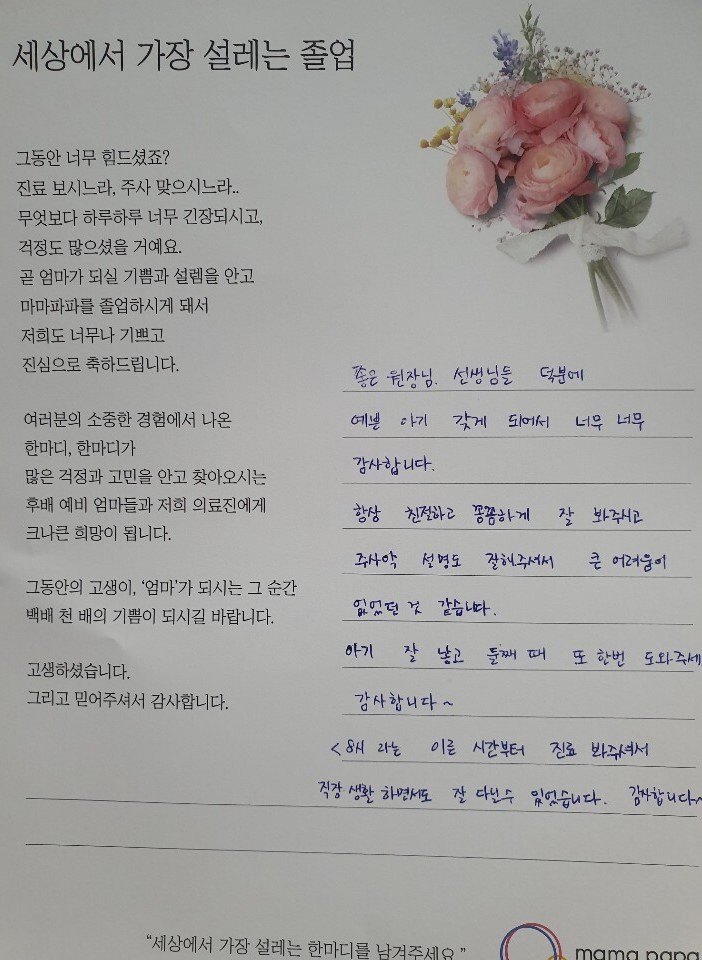 세상에서 가장 설레는 졸업
그동안 너무 힘드셨죠?
진료 보시느라, 주사 맞으시느라..
무엇보다 하루하루 너무 긴장되시고,
걱정도 많으셨을 거예요.
곧 엄마가 되실 기쁨과 설렘을 안고
마마파파를 졸업하시게 돼서
저희도 너무나 기쁘고
진심으로 축하드립니다.
여러분의 소중한 경험에서 나온
한마디, 한마디가
많은 걱정과 고민을 안고 찾아오시는
후배 예비 엄마들과 저희 의료진에게
크나큰 희망이 됩니다.
그동안의 고생이, '엄마'가 되시는 그 순간
백배 천 배의 기쁨이 되시길 바랍니다.
고생하셨습니다.
그리고 믿어주셔서 감사합니다.
좋은 원장님. 선생님들 덕분에
예쁜 아기 갖게 되어서 너무 너무
감사합니다.
항상 친절하고 꼼꼼하게 잘 봐주시고
주사약 설명도 잘해주셔서 큰 어려움이
없었던 것 같습니다.
아기 잘 낳고 둘째 때 또 한번 도와주세
감사합니다~
<8시 라는 이른 시간부터 진료 봐주셔서
직장 생활 하면서도 잘 다닐수 있었습니다. 감사합니다~
"세상에서 가장 설레는 한마디를 남겨주세요"
mama papa